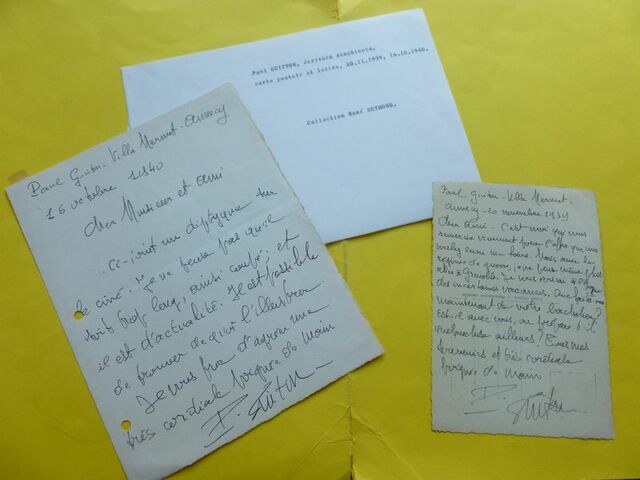 Paul GUITTON, écrivain dauphinois,
carte postale et lettre, 20.11.1939, 16.10.1940.
Collection René REYMOND.
Paul Guiton - Villa Mermet - Annecy
16 octobre 1940
Cher Monsieur et ami
Ci-joint un diptyque sur
le ciné. Je ne pense pas qu'il
soit trop long, ainsi coupé; et
il est d'actualité. Il est possible
de trouver de quoi l'illustrer.
Je vous prie d'agréer une
très cordiale poignée de main
P. Guiton
Paul Guiton - Villa Mermet -
Annecy - 20 novembre 1939
Cher ami - C'est moi qui vous
remercie vraiment pour l'
régime de guerre, je ne peux même plus
à Grenoble. Je vous verrai
des incertaines vacances.
maintenant de votre
Est-il avec vous, ou prépare-t-il
quelque chose ailleurs?
et très cordiale
poignée de main
P. Guiton